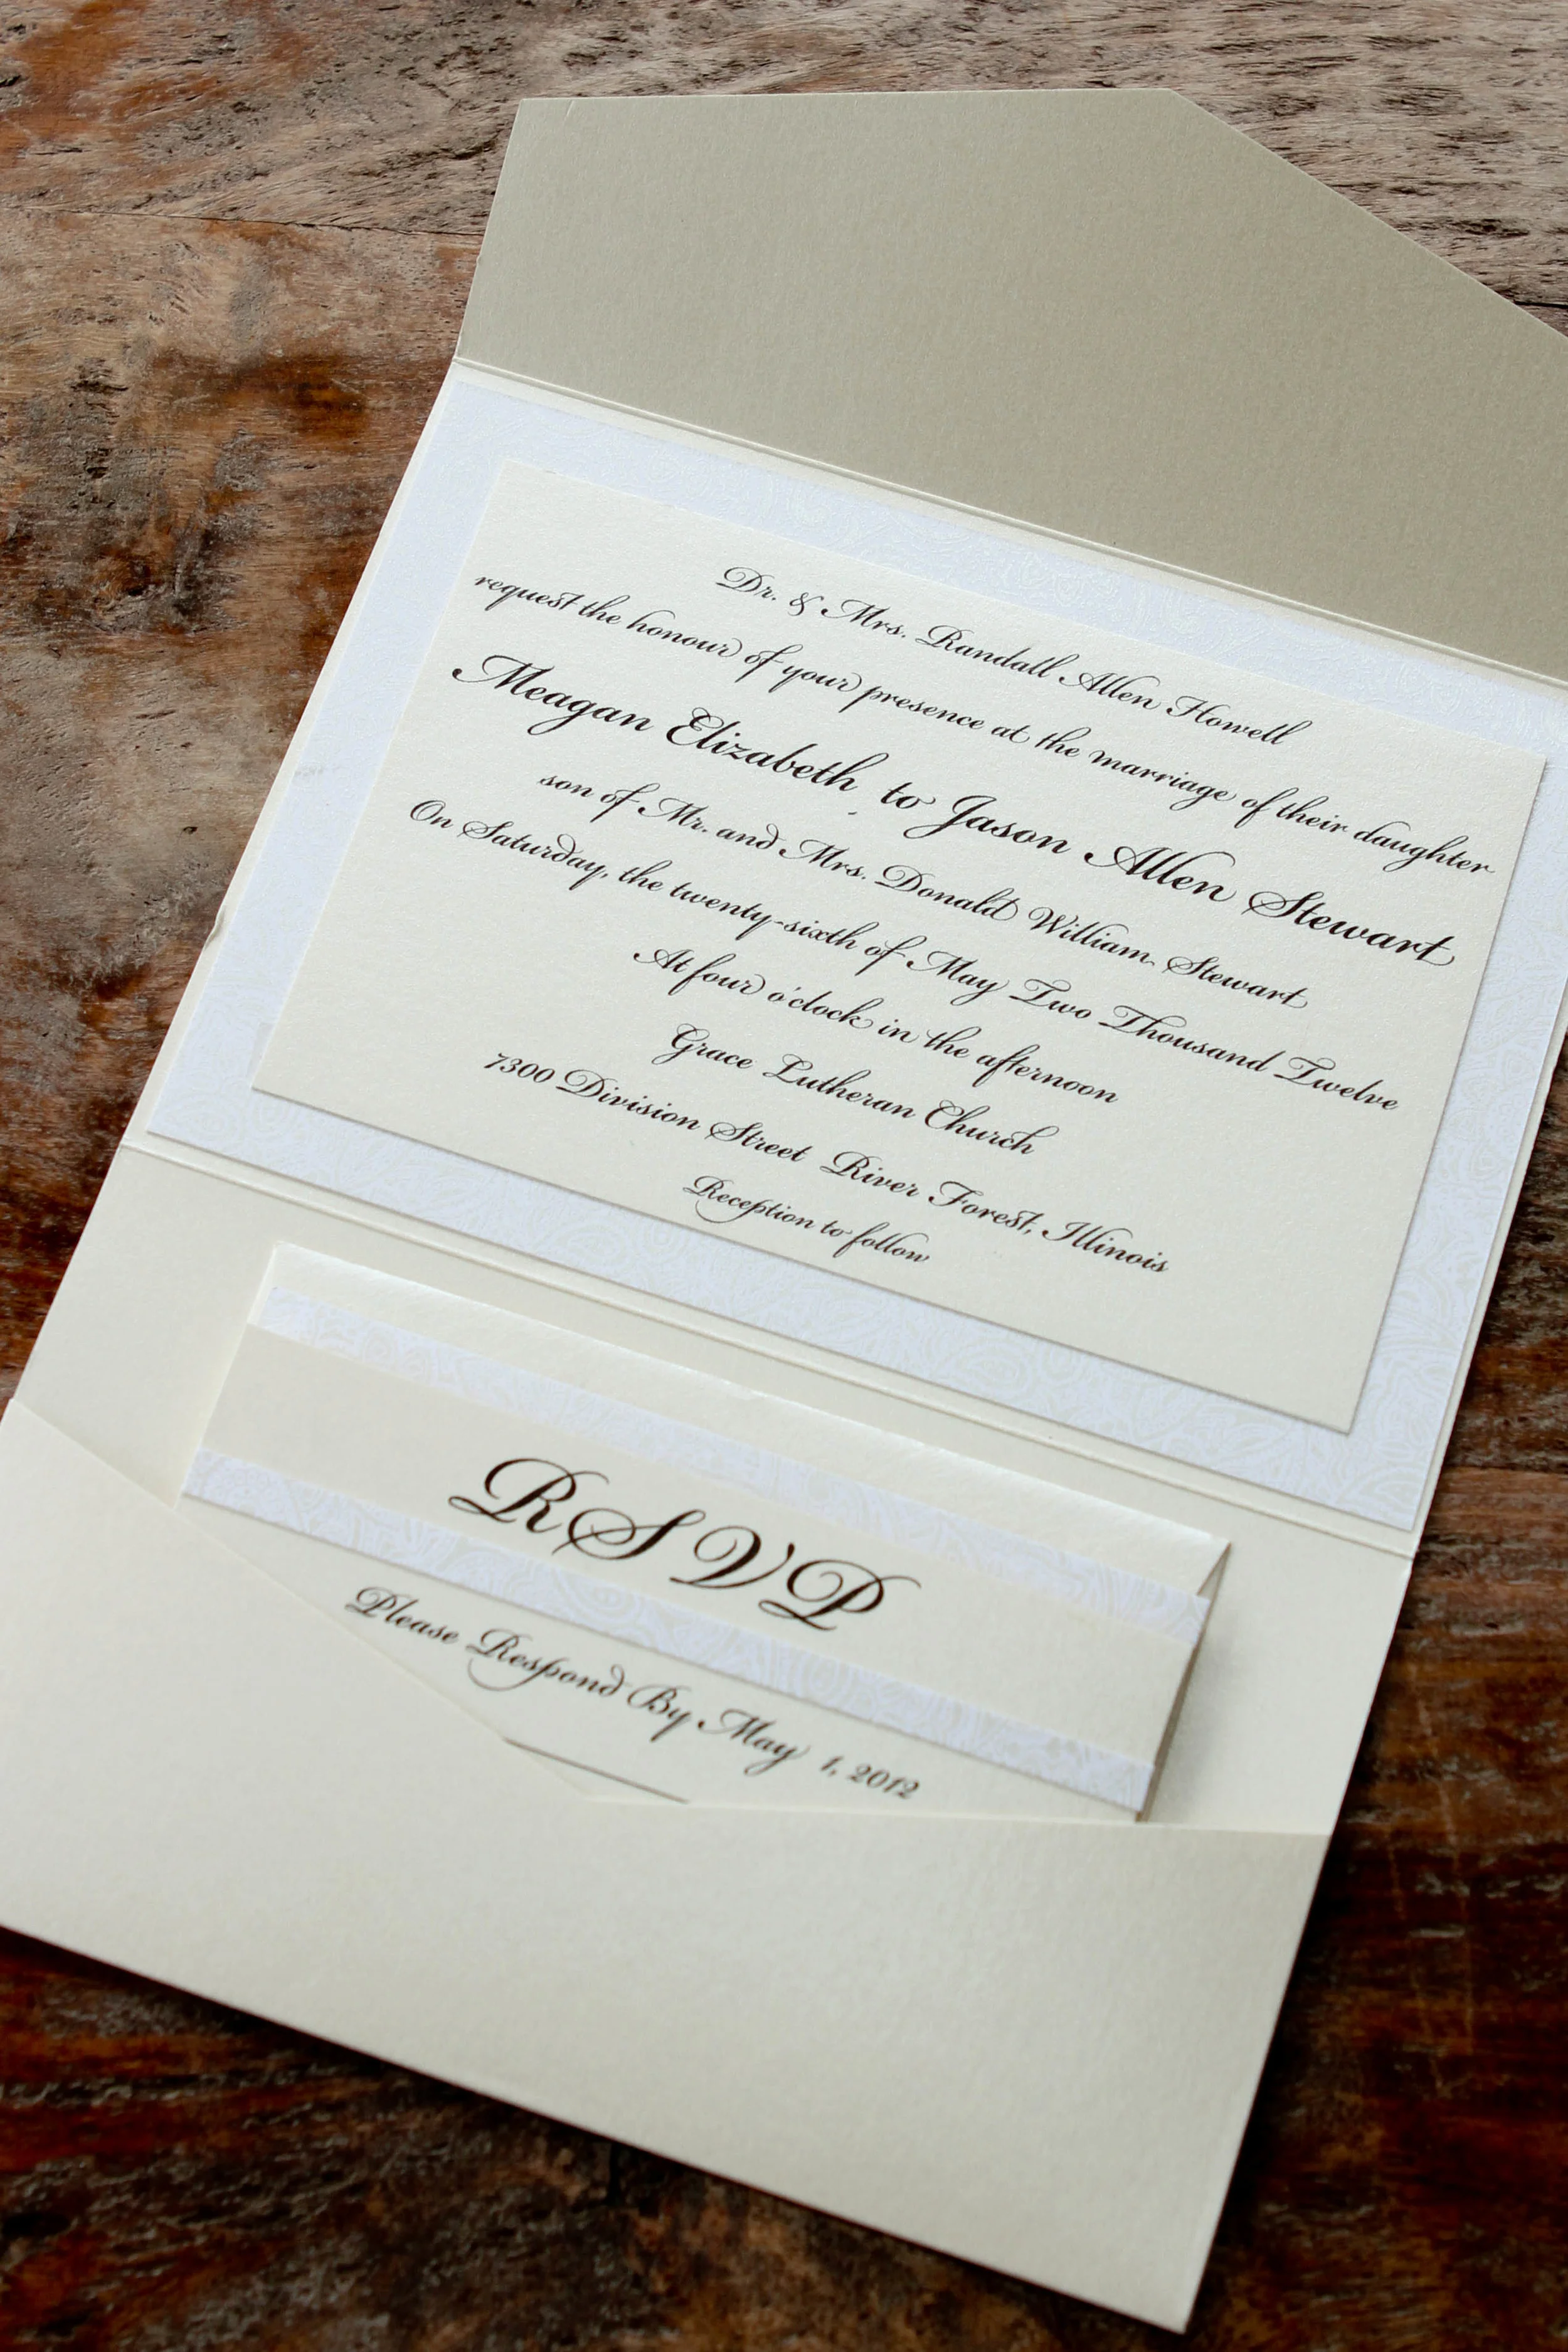 Dr. & Mrs. Randall Allen Howell
request the honour of your presence at the marriage of their daughter
Meagan Elizabeth to Jason Allen Stewart
son of Mr. and Mrs. Donald William Stewart
On Saturday, the twenty-sixth of May Two Thousand Twelve
At four o'clock in the afternoon
Grace Lutheran Church
7300 Division Street River Forest, Illinois
Reception to follow
RSVP
Please Respond By May 1, 2012